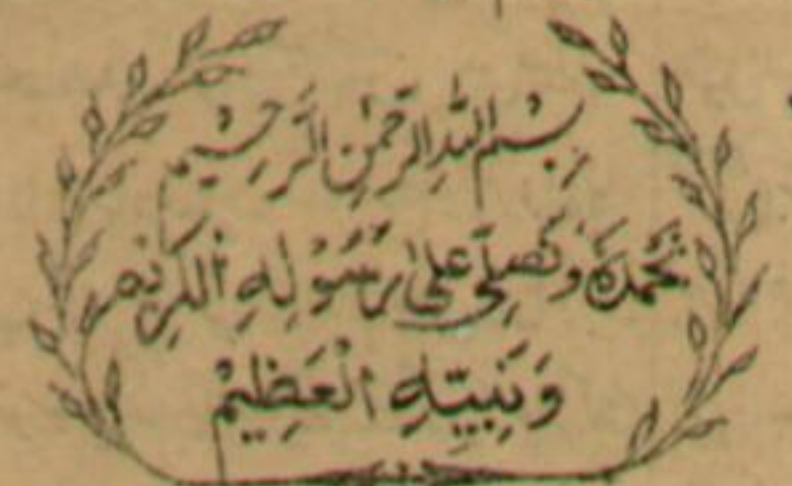 بِسْمِ اللّٰهِ الرَّحْمٰنِ الرَّحِيْمِ
نَحْمَدُهٗ وَنُصَلِّیْ عَلٰی رَسُوْلِهِ الْكَرِيْمِ
وَنَبِيِّهِ الْعَظِيْمِ